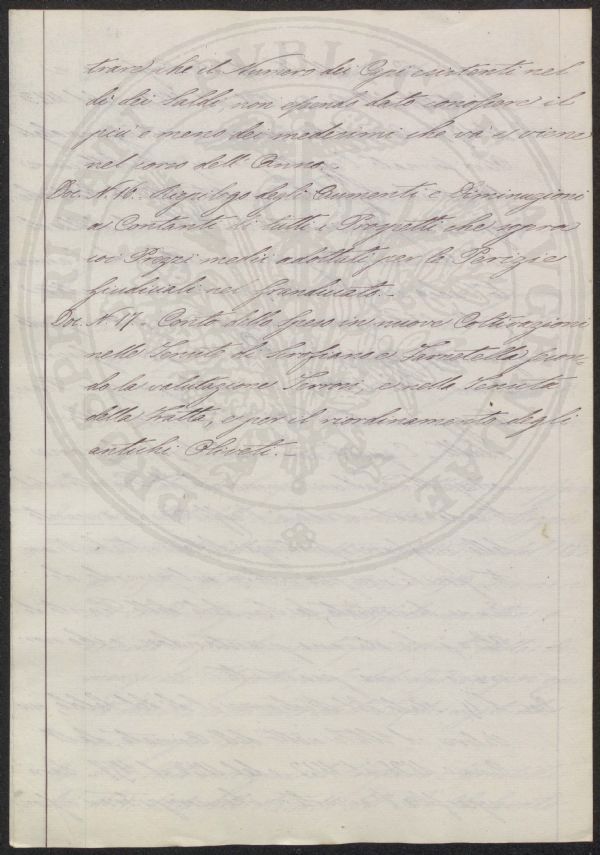 trare che il Numero dei Capi esistenti nel
di dei Saldi, non essendo dato conoscere il
più e meno dei medesimi che va e viene
nel corso dell'Anno.-
Doc. N. 16. Riepilogo degli Aumenti e Diminuzioni
ai Contanti di tutti i Prospetti che sopra
coi Prezzi medii adottati per le Perizie
giudiciali nel Granducato.-
Doc. N. 17. Conto delle Spese in nuove Coltivazioni
nelle Tenute di Scrofiano e Farnetella secon-
do la valutazione e nella Tenuta
della Fratta, e per il riordinamento degli
antichi Oliveti.-